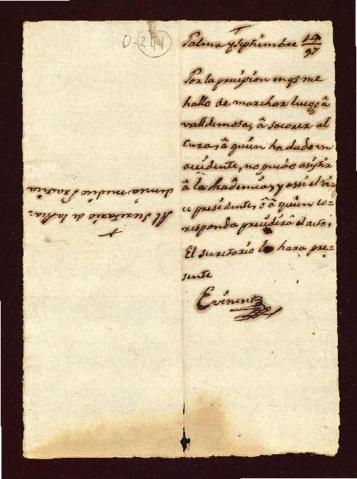 Palma y Septiembre 14/97
Por la precision en q.e me
hallo de marchar luego â
valldemosa, â socorrer al
Cura, â quien ha dado un
accidente, no puedo asistir
â la Academia, y assi el Vi-
ce presidente, ô â quien co-
rresponda presidirâ el acto;
El secretario lo hara pre-
sente
Evinent
Al Secretario de la Aca-
demia medico Practica